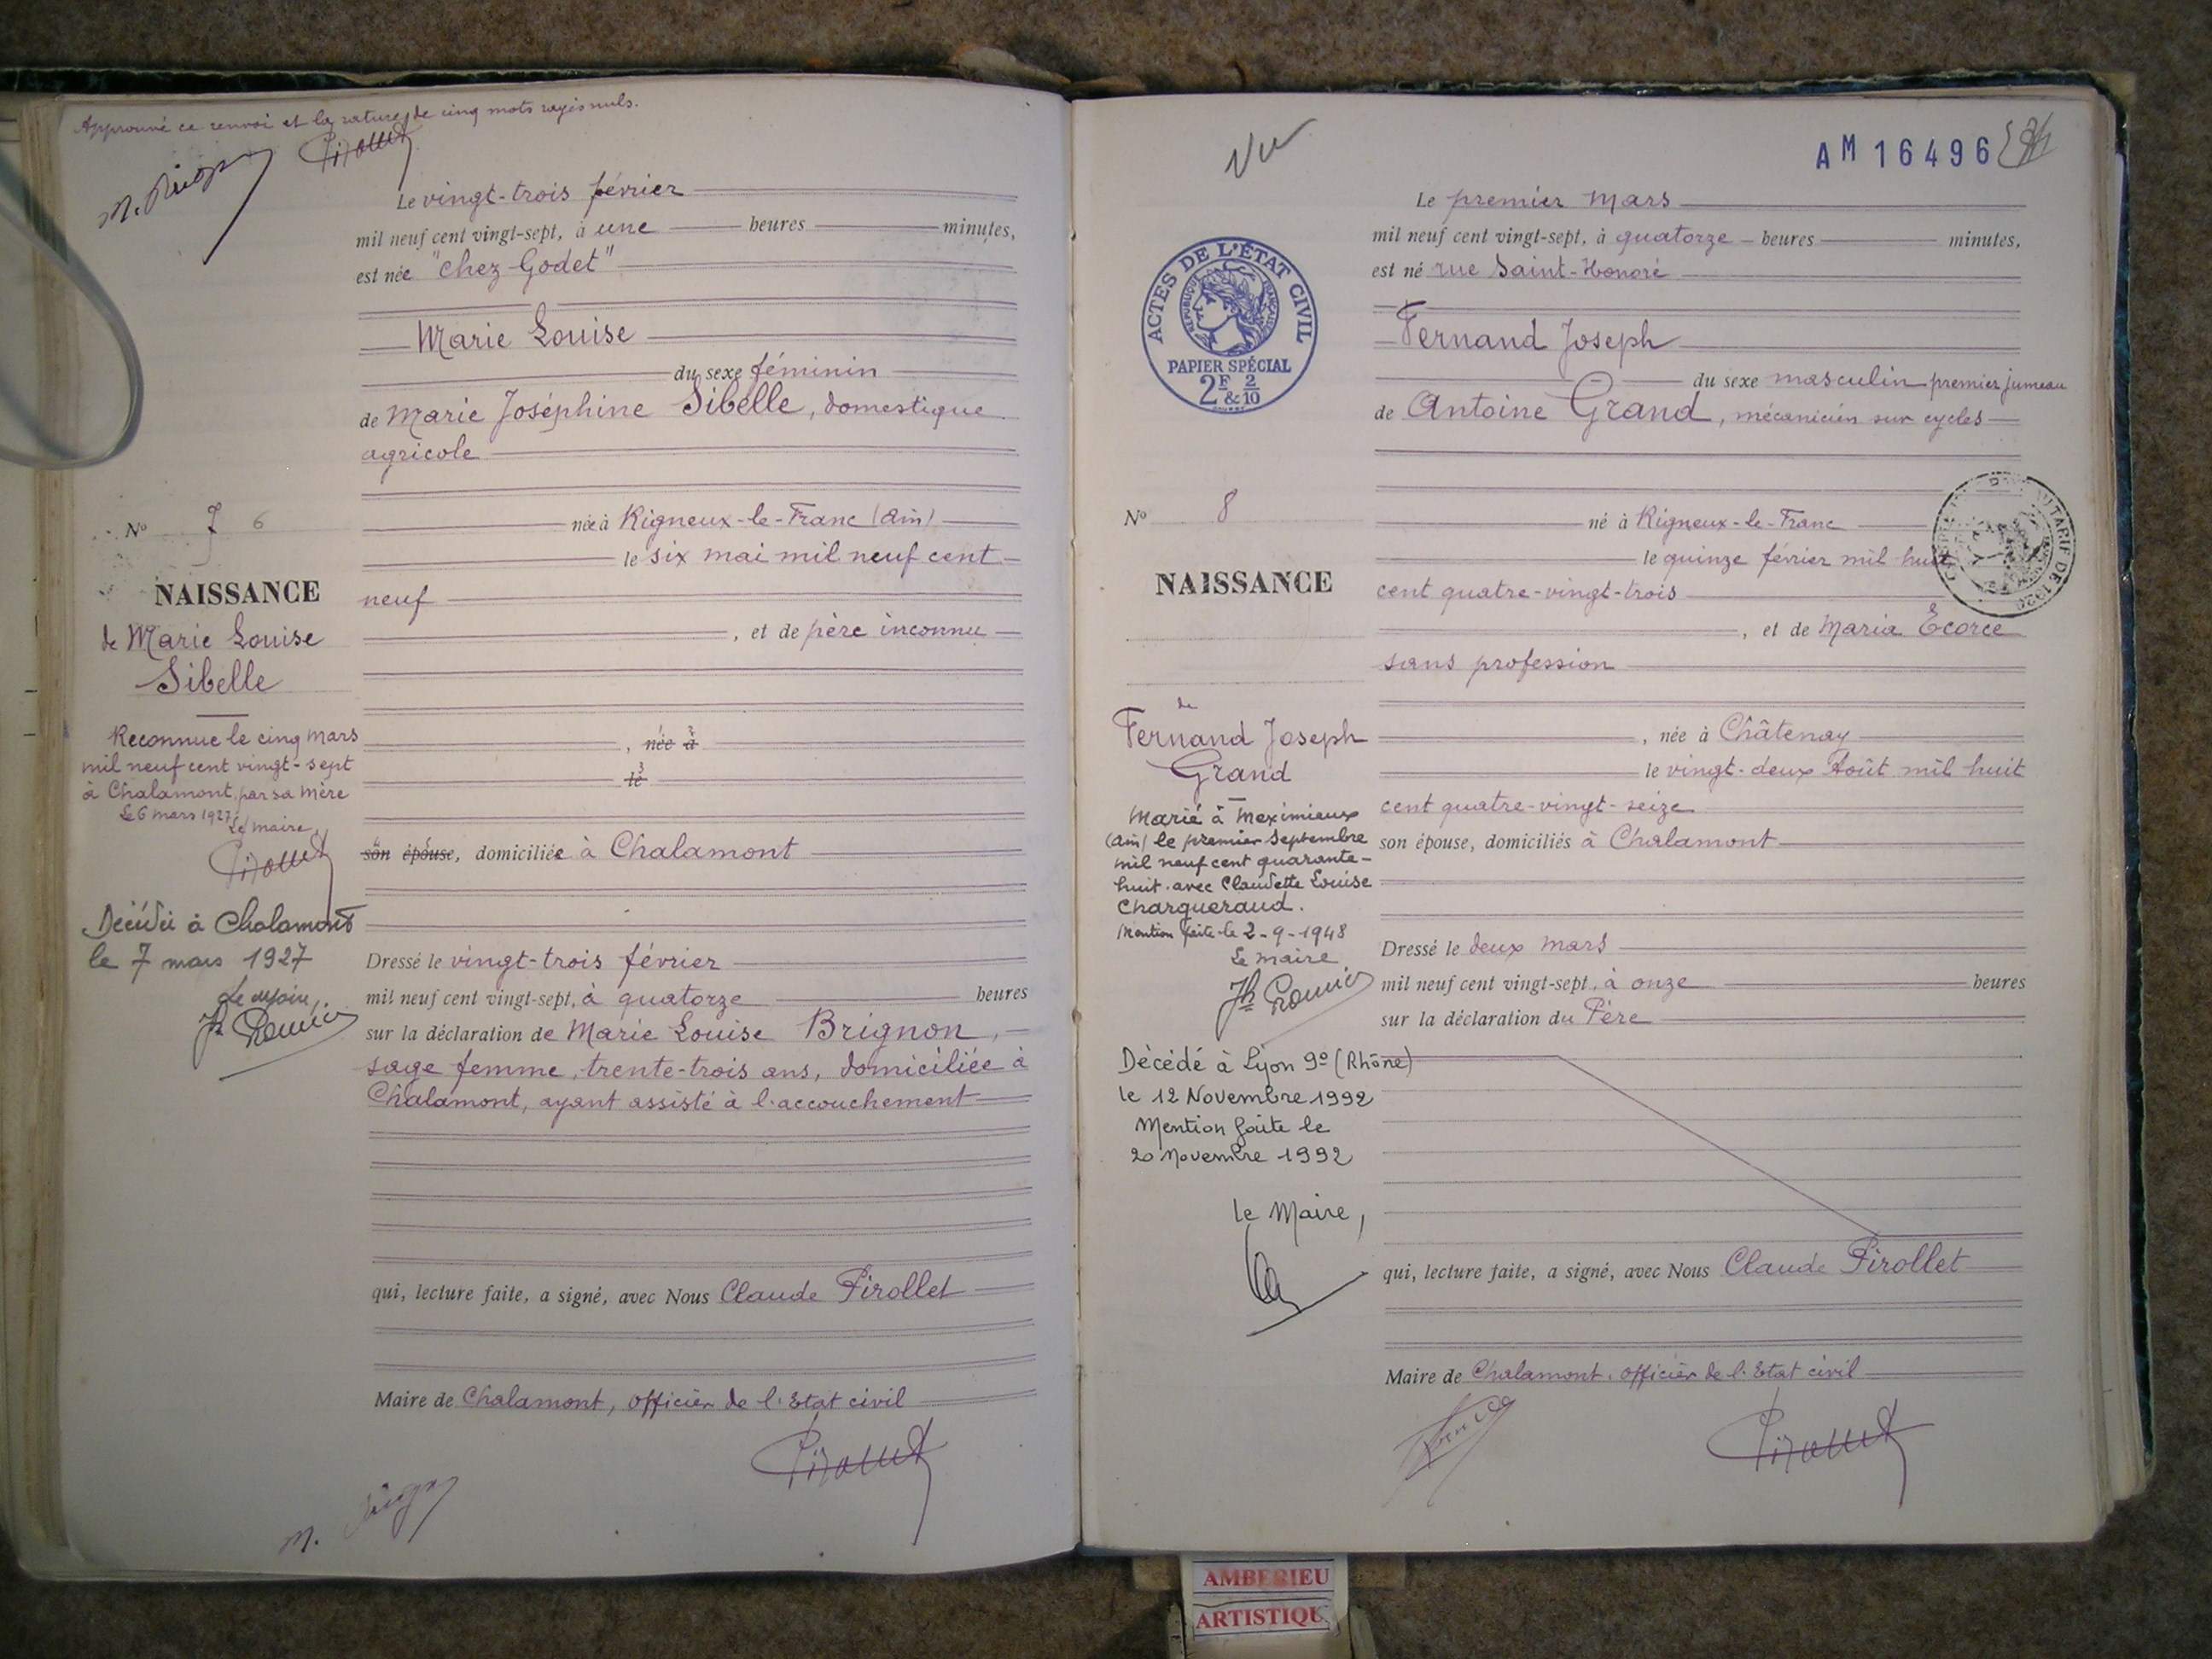 Approuvé ce renvoi et la rature de cinq mots rayés nuls.
Le vingt-trois février
mil neuf cent vingt-sept, à une heures minutes,
est née "chez Godet"
Marie Louise
du sexe féminin
de Marie Joséphine Sibelle, domestique
agricole
née à Rigneux-le-Franc (Ain)
le six mai mil neuf cent
neuf
, et de père inconnu
, née à
le
son épouse, domiciliée à Chalamont
Dressé le vingt-trois février
mil neuf cent vingt-sept, à quatorze heures
sur la déclaration de Marie Louise Brignon,
sage femme, trente-trois ans, domiciliée à
Chalamont, ayant assisté à l'accouchement
qui, lecture faite, a signé, avec Nous Claude Pirollet
Maire de Chalamont, officier de l'Etat civil
No 7 6
NAISSANCE
de Marie Louise
Sibelle
Reconnue le cinq mars
mil neuf cent vingt-sept
à Chalamont par sa mère
Le 6 mars 1927
Le maire,
Décédée à Chalamont
le 7 mars 1927
Le maire,
Vu
AM 16496
ACTES DE L'ÉTAT CIVIL
RÉPUBLIQUE FRANÇAISE
PAPIER SPÉCIAL
2F & 2/10
Le premier mars
mil neuf cent vingt-sept, à quatorze heures minutes,
est né rue Saint-Honoré
Fernand Joseph
du sexe masculin premier jumeau
de Antoine Grand, mécanicien sur cycles
né à Rigneux-le-Franc
le quinze février mil huit
cent quatre-vingt-trois
, et de Maria Ecorce
sans profession
, née à Châtenay
le vingt-deux Août mil huit
cent quatre-vingt-seize
son épouse, domiciliés à Chalamont
Dressé le deux mars
mil neuf cent vingt-sept, à onze heures
sur la déclaration du Père
qui, lecture faite, a signé, avec Nous Claude Pirollet
Maire de Chalamont, officier de l'Etat civil
No 8
NAISSANCE
de
Fernand Joseph
Grand
Marié à Meximieux
(Ain) le premier septembre
mil neuf cent quarante-
huit avec Claudette Louise
Charqueraud.
Mention faite le 2-9-1948
Le maire
Décédé à Lyon 9e (Rhône)
le 12 Novembre 1992
Mention faite le
20 Novembre 1992
le Maire,
AMBERIEU
ARTISTIQU